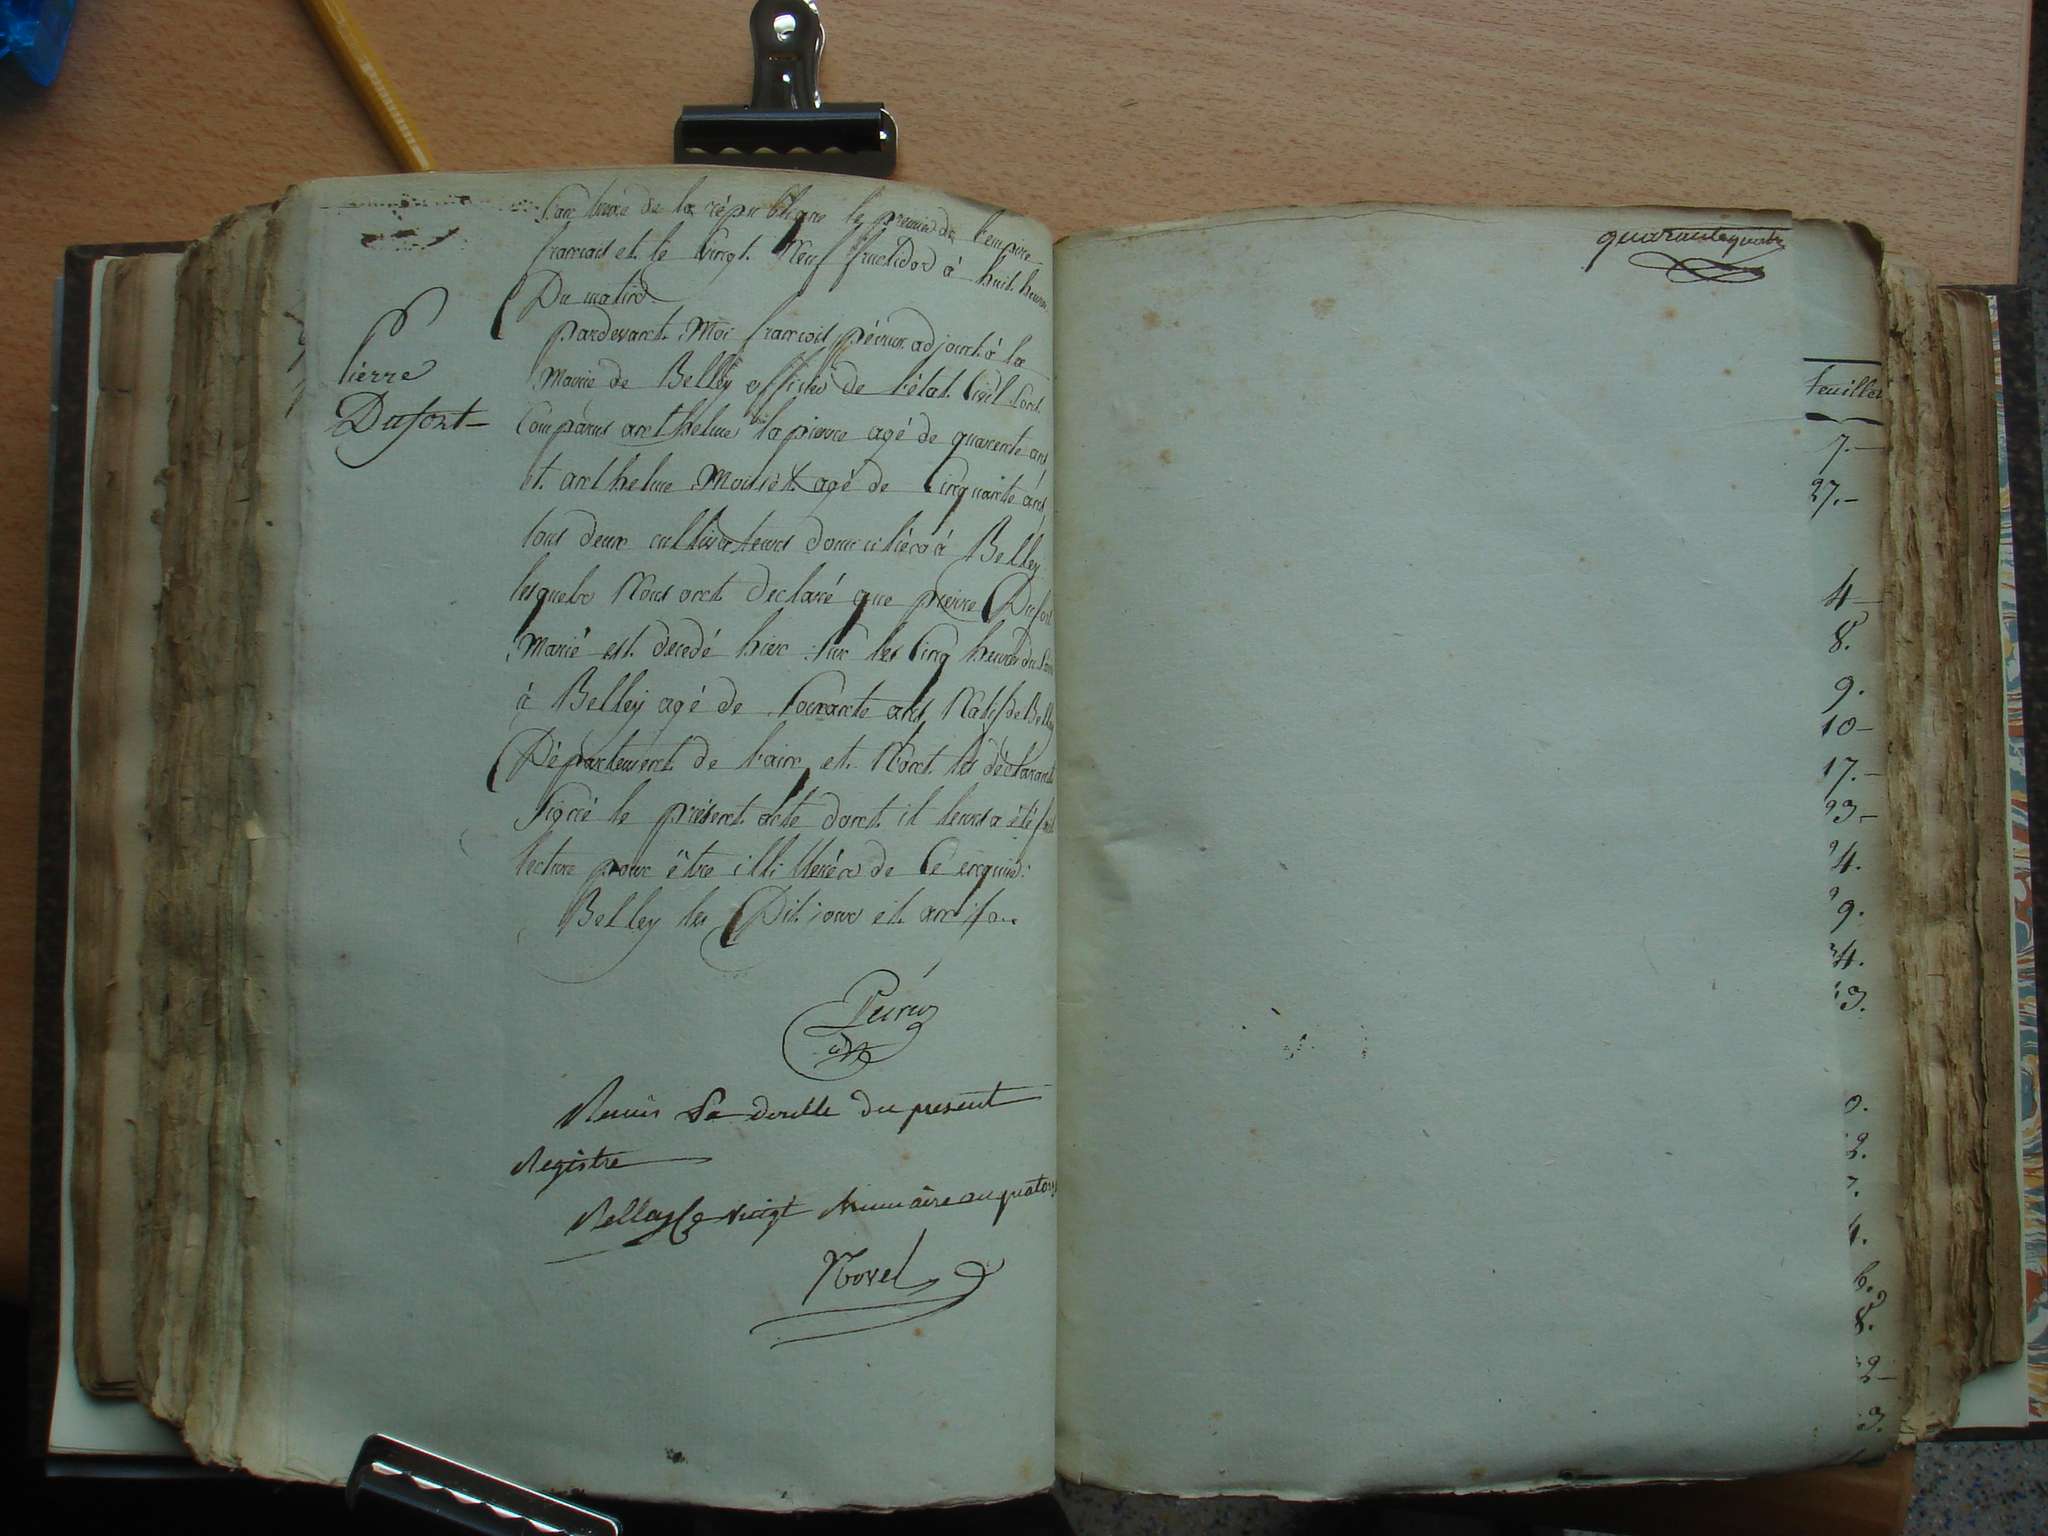 L'an treize de la république le premier de l'empire
francais et le vingt Neuf fructidor à huit heures
Du matin
pardevant Moi francois adjoint à la
Pierre
Dufort
Mairie de Belley officier de l'état Civil Sont
Comparus anthelme lapierre agé de quarente ans
et anthelme agé de Cinquante ans
tous deux cultivateurs domiciliés à Belley
lesquels Nous ont declaré que pierre Dufort
Marié est décédé hier sur les Cinq heures du Soir
à Belley agé de Soixante ans Natif de Belley
Département de l'ain et N'ont les déclarants
Signé le présent acte dont il leurs a été fait
lecture pour être illitterés de Ce enquis
Belley les Dit jour et an
Remis le double du present
Registre
Belley le vingt brumaire an quatorze
Novel
quarantequatre
Feuillet
7.
27.
4
8.
9.
10
17.
23
24.
29.
34.
3.
0.
2.
7.
4.
6.
8.
2
3.